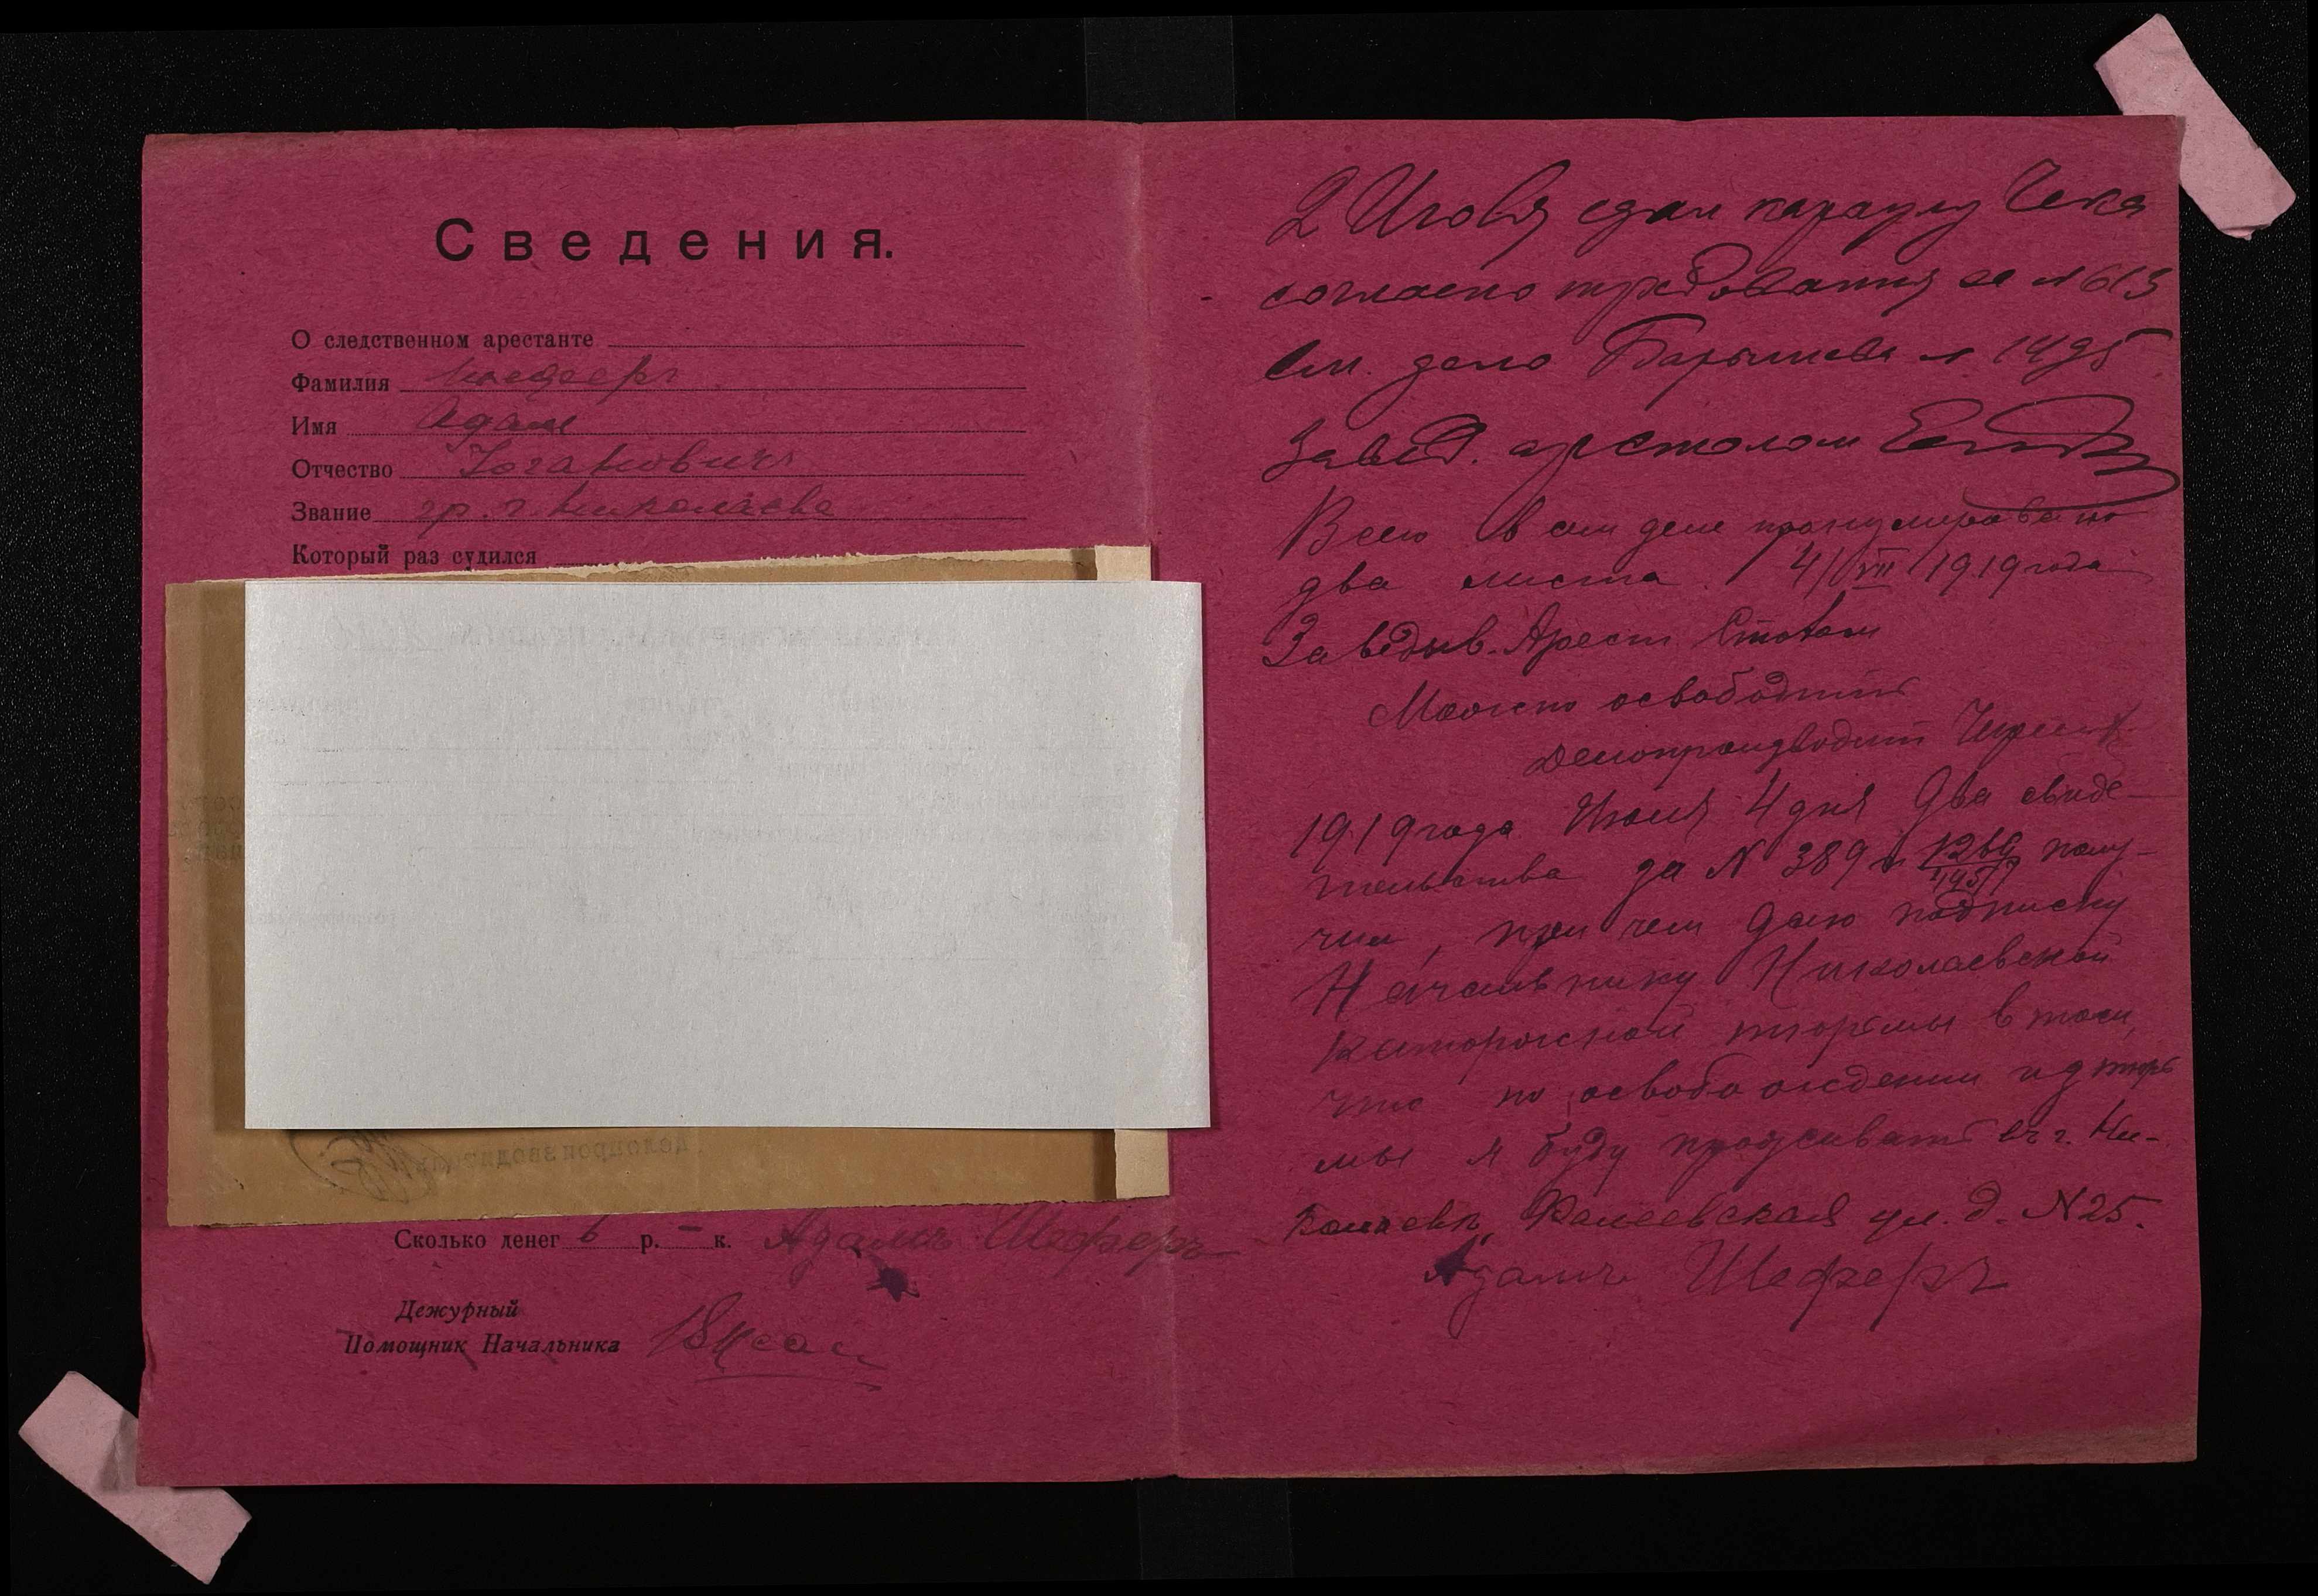 Сведения.
О следственном арестанте
Фамилия Шефферъ
Имя Адам
Отчество Иоганович
Звание гр. г. Николаева
Который раз судился
Делопроизводитель
Сколько денег 6 р. – к. Адамъ Шеферъ
Дежурный
Помощник Начальника
2 Июля сдал караулу Чека
согласно требования за № 613
См. дело Барышева № 1495
Завед. арстолом
Всего в сем деле пронумеровано
два листа. 4/VII 1919 года
Заведыв. Арест. Столом
Можно освободить
Делопроизводит
1919 года Июля 4 дня Два свиде-
тельства за № 389 и полу-
чил, при чем даю подписку
Начальнику Николаевской
Каторжной тюрьмы в том,
что по освобождении из тюрь
мы я буду проживать въ г. Ни-
колаевъ, Фалеевская ул. д. №25.
Адамъ Шеферъ